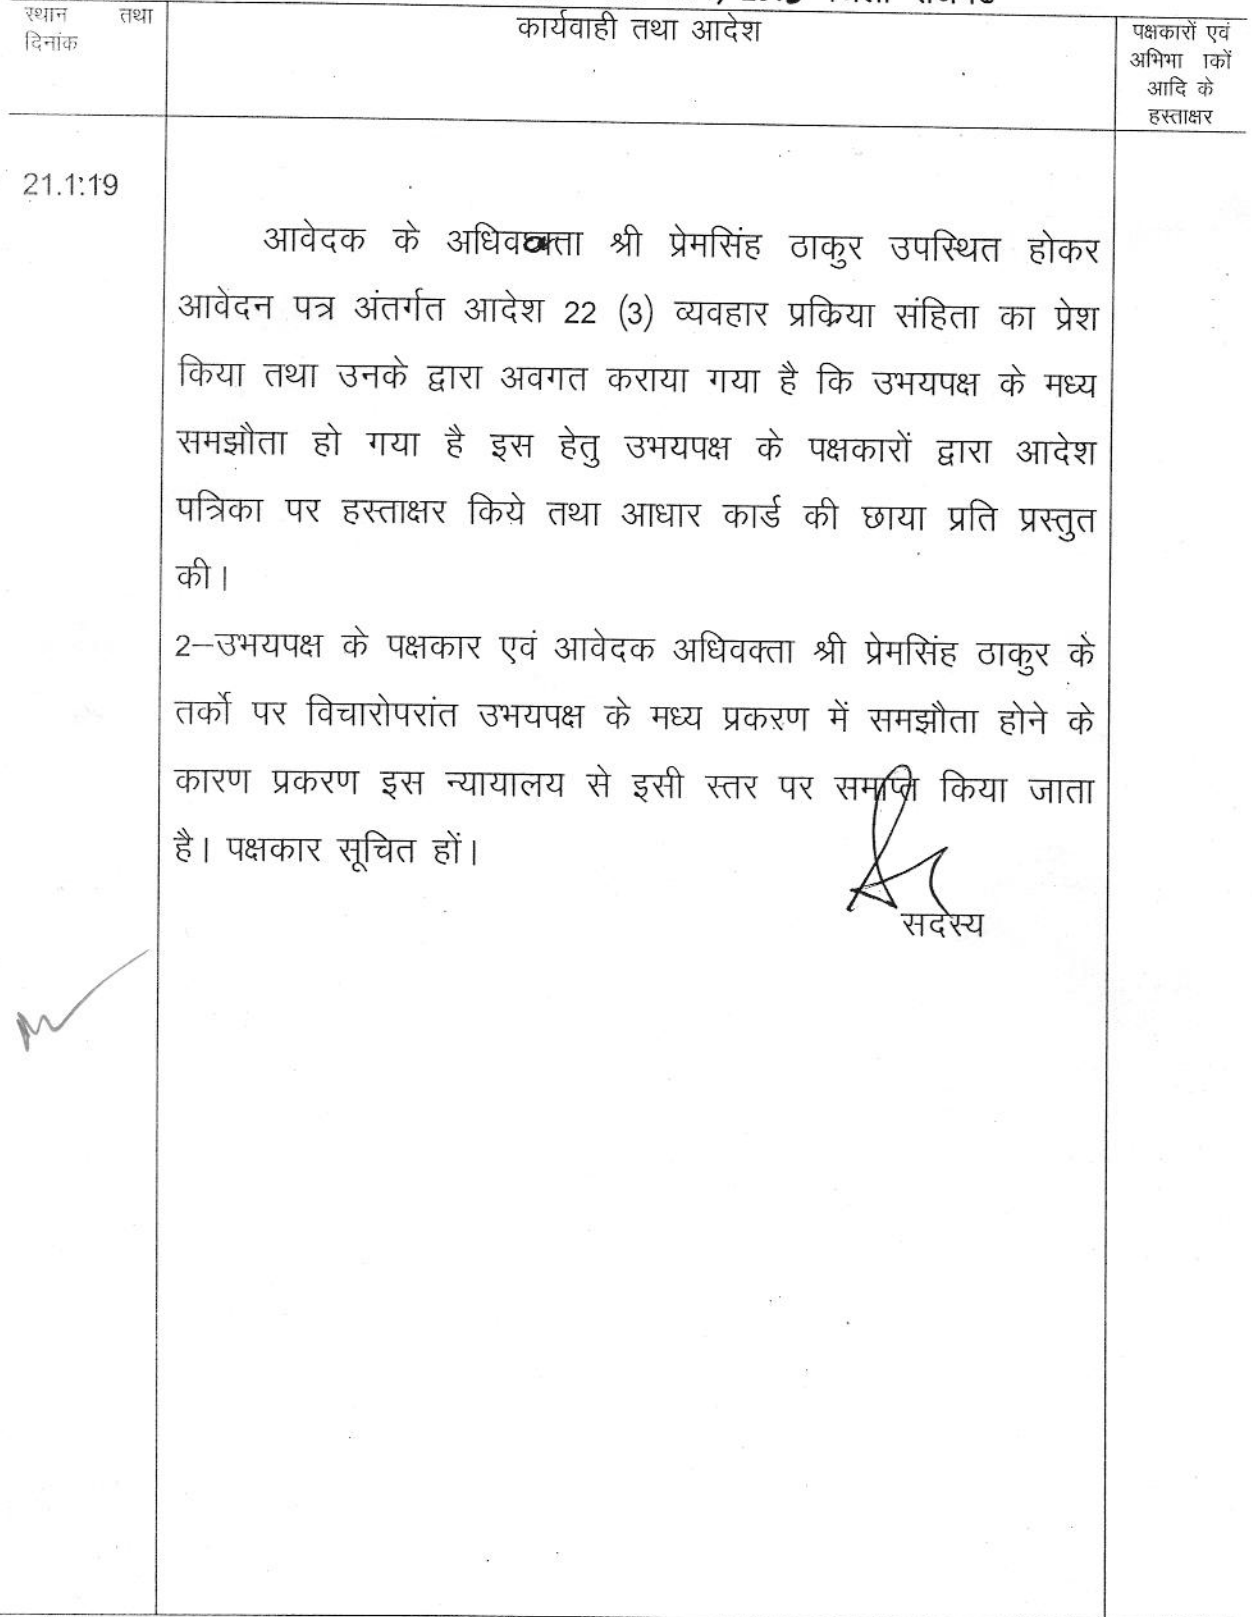 स्थान तथा
दिनांक
कार्यवाही तथा आदेश
पक्षकारों एवं
अभिभा कों
आदि के
हस्ताक्षर
21.1.19
आवेदक के अधिवक्ता श्री प्रेमसिंह ठाकुर उपस्थित होकर
आवेदन पत्र अंतर्गत आदेश 22 (3) व्यवहार प्रक्रिया संहिता का प्रेश
किया तथा उनके द्वारा अवगत कराया गया है कि उभयपक्ष के मध्य
समझौता हो गया है इस हेतु उभयपक्ष के पक्षकारों द्वारा आदेश
पत्रिका पर हस्ताक्षर किये तथा आधार कार्ड की छाया प्रति प्रस्तुत
की।
2–उभयपक्ष के पक्षकार एवं आवेदक अधिवक्ता श्री प्रेमसिंह ठाकुर के
तर्को पर विचारोपरांत उभयपक्ष के मध्य प्रकरण में समझौता होने के
कारण प्रकरण इस न्यायालय से इसी स्तर पर समाप्ति किया जाता
है। पक्षकार सूचित हों।
सदस्य